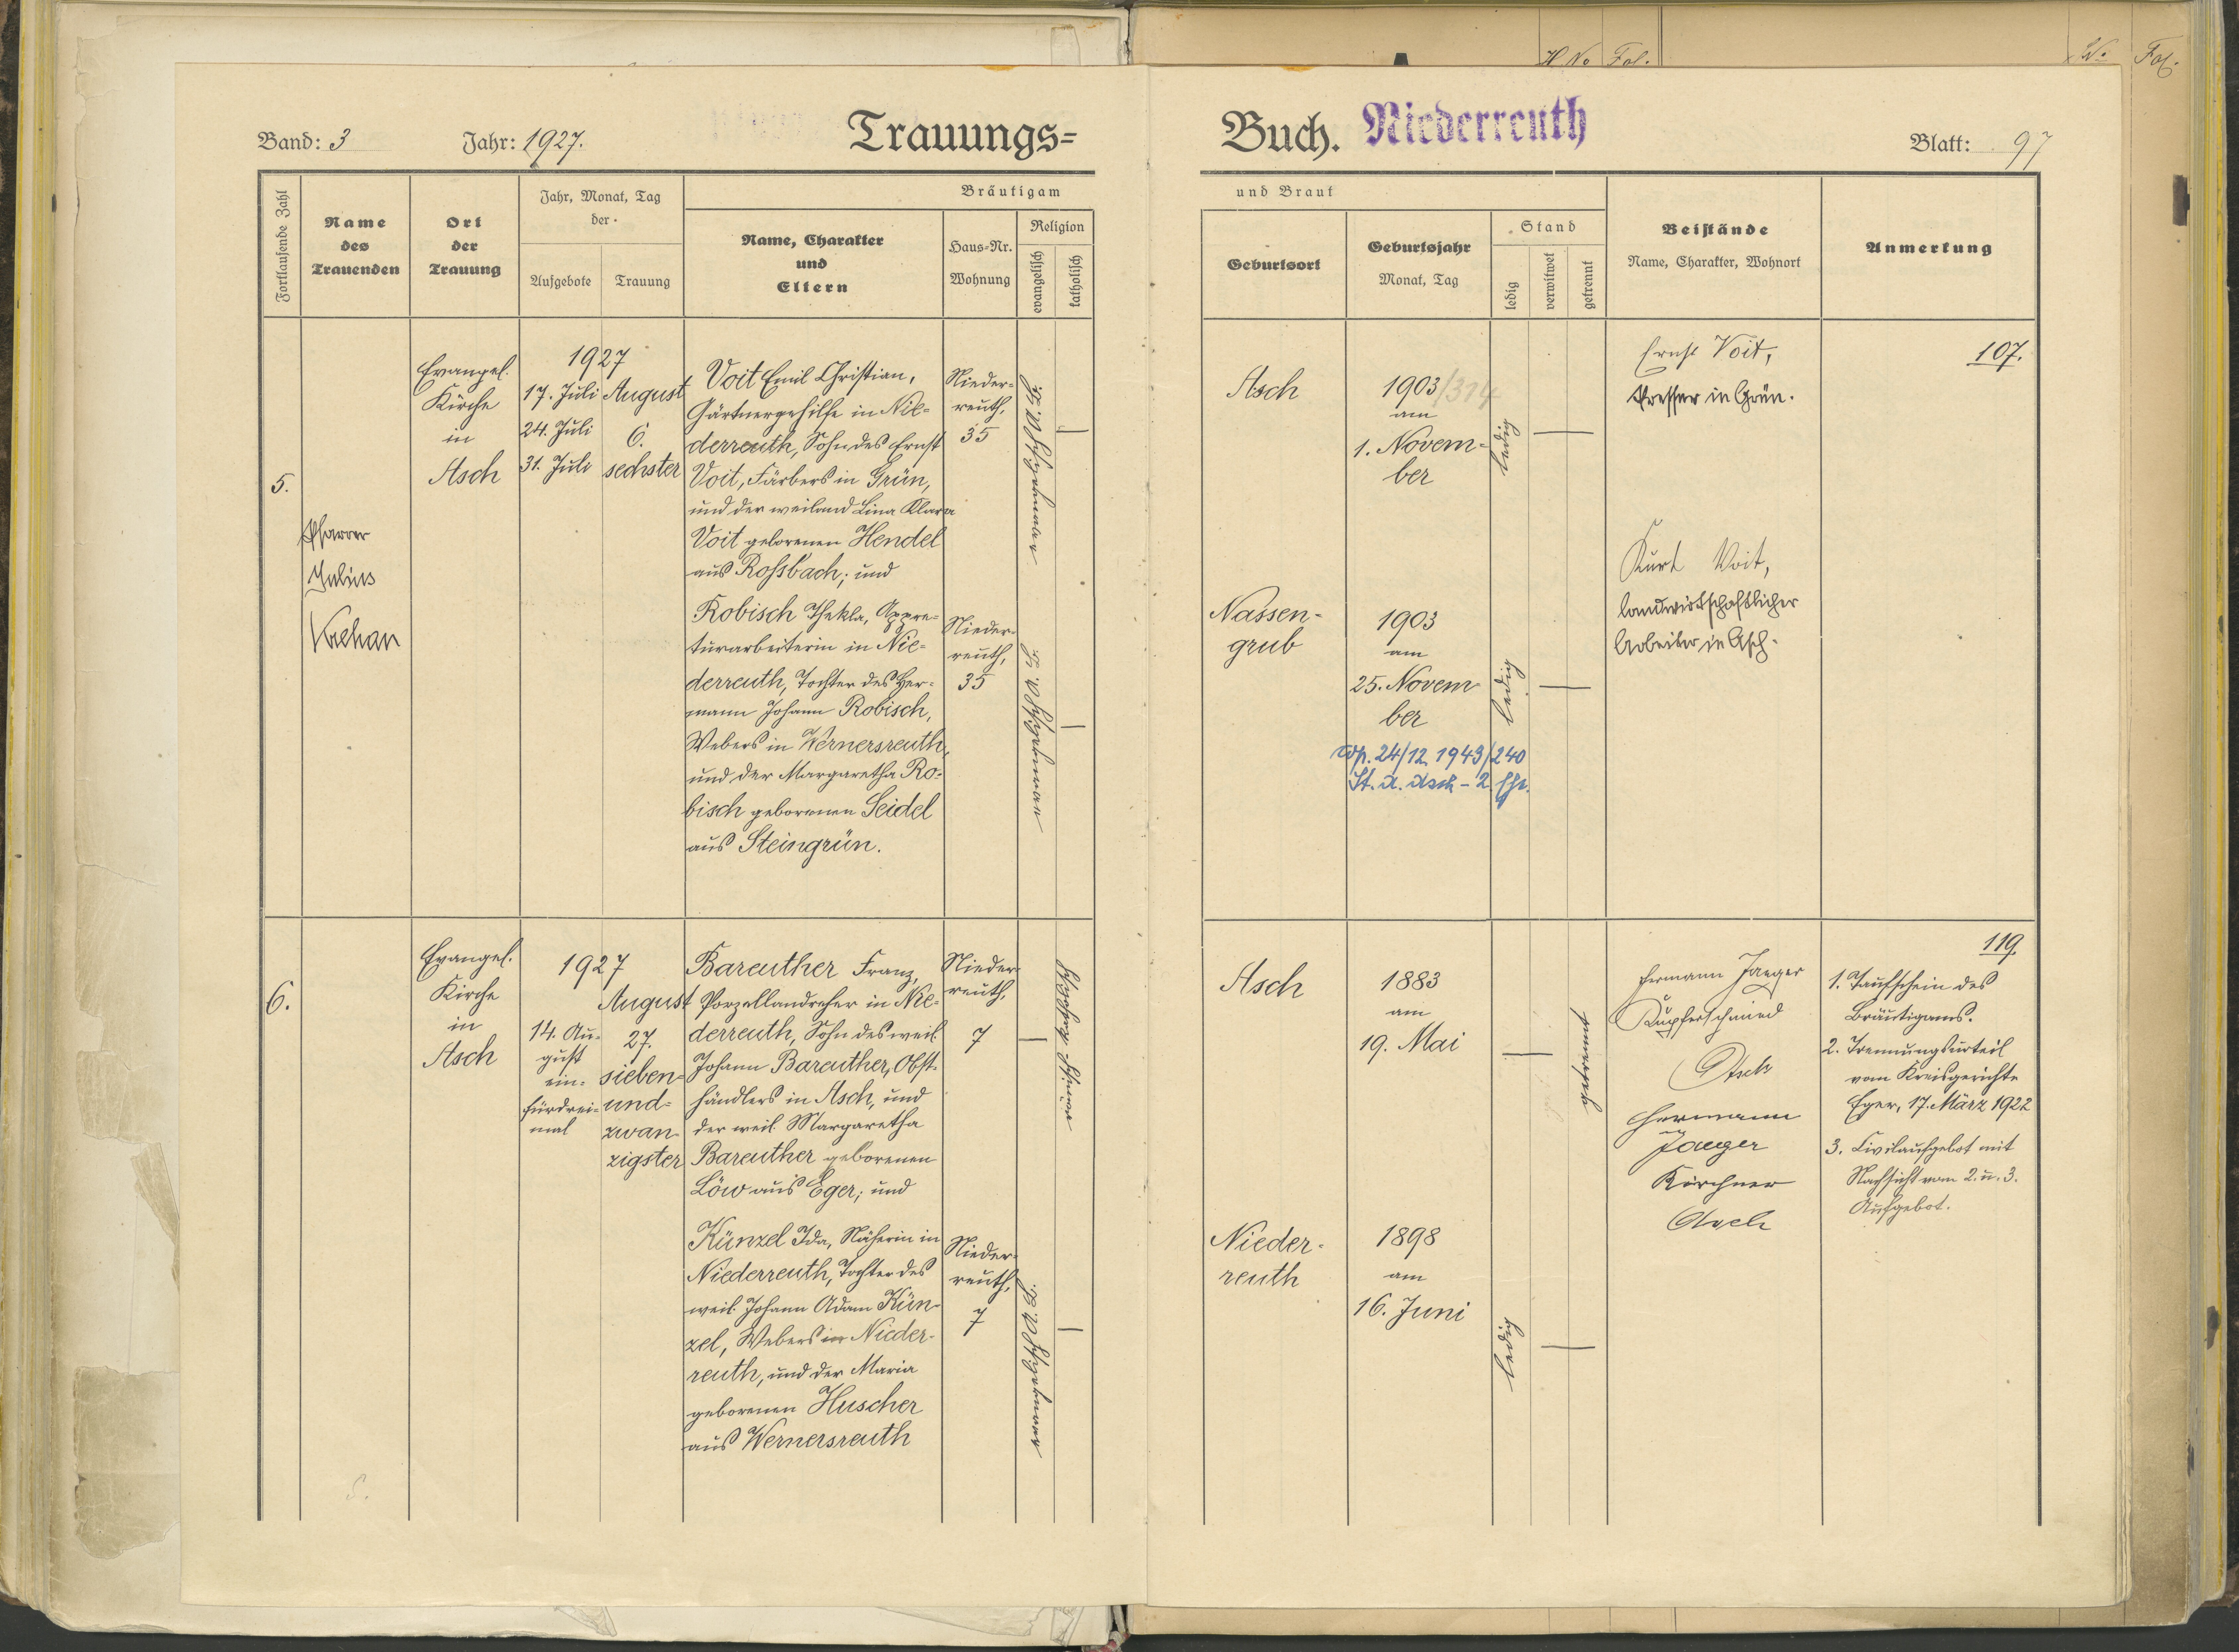 H No Fol.
No Fol.
Band: 3 Jahr: 1927. Trauungs= Buch. Niederreuth Blatt: 97
Fortlaufende Zahl
Name
des
Trauenden
Ort
der
Trauung
Jahr, Monat, Tag
der
Aufgebote Trauung
Bräutigam
Name, Charakter
und
Eltern
Haus=Nr.
Wohnung
Religion
evangelisch
katholisch
und Braut
Geburtsort
Geburtsjahr
Monat, Tag
Stand
ledig
verwitwet
getrennt
Beistände
Name, Charakter, Wohnort
Anmerkung
5.
Pfarrer
Julius
Evangel.
Kirche
in
Asch
1927
17. Juli
24. Juli
31. Juli
August
6.
sechster
Voit Emil Christian,
Gärtnergehilfe in Nie=
derreuth, Sohn des Ernst
Voit, Färbers in Grün,
und der weiland Lina Klara
Voit geborenen Hendel
aus Roßbach; und
Robisch Thekla, Appre=
turarbeiterin in Nie=
derreuth, Tochter des Her=
mann Johann Robisch,
Webers in Wernersreuth,
und der Margaretha Ro=
bisch geborenen Seidel
aus Steingrün.
Nieder=
reuth,
35
evangelisch A. B.
Nieder=
reuth,
35
evangelisch A. B.
Asch
1903/314
am
1. Novem=
ber
ledig
Nassen=
grub
1903
am
25. Novem
ber
ledig
cop. 24/12 1943/240
St. A. Asch - 2. Ehe.
Ernst Voit,
Presser in Grün.
Kurt Voit,
landwirtschaftlicher
Arbeiter in Asch.
107.
6.
Evangel.
Kirche
in
Asch
1927
14. Au=
gust
ein=
für drei=
mal
August
27.
sieben=
und=
zwan=
zigster
Bareuther Franz,
Porzellandreher in Nie=
derreuth, Sohn des weil.
Johann Bareuther, Obst=
händlers in Asch, und
der weil. Margaretha
Bareuther geborenen
Löw aus Eger; und
Künzel Ida, Näherin in
Niederreuth, Tochter des
weil. Johann Adam Kün=
zel, Webers in Nieder=
reuth, und der Maria
geborenen Huscher
aus Wernersreuth
Nieder=
reuth,
7
römisch katholisch
Nieder=
reuth,
7
evangelisch A. B.
Asch
1883
am
19. Mai
getrennt
Nieder=
reuth
1898
am
16. Juni
ledig
Hermann Jaeger
Kupferschmied
Asch
Hermann
Jaeger
Kirchner
Asch
119.
1. Taufschein des
Bräutigams.
2. Trennungsurteil
vom Kreisgerichte
Eger, 17. März 1922
3. Civilaufgebot mit
Nachsicht vom 2. u. 3.
Aufgebot.